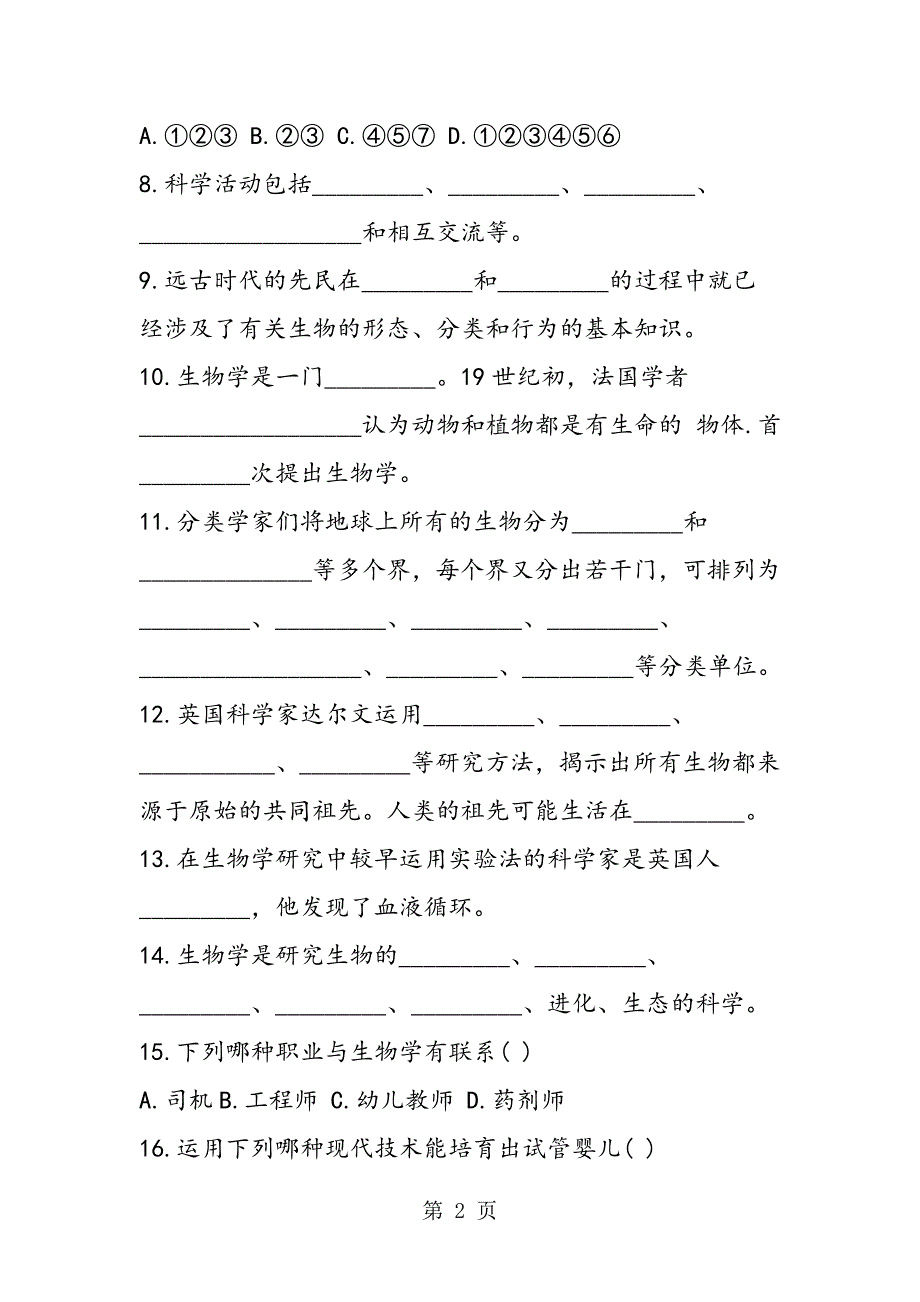 A.①②③ B.②③ C.④⑤⑦ D.①②③④⑤⑥
8.科学活动包括_________、_________、_________、
__________________和相互交流等。
9.远古时代的先民在_________和_________的过程中就已
经涉及了有关生物的形态、分类和行为的基本知识。
10.生物学是一门_________。19世纪初，法国学者
__________________认为动物和植物都是有生命的 物体.首
_________次提出生物学。
11.分类学家们将地球上所有的生物分为_________和
______________等多个界，每个界又分出若干门，可排列为
_________、_________、_________、_________、
__________________、_________、_________等分类单位。
12.英国科学家达尔文运用_________、_________、
___________、_________等研究方法，揭示出所有生物都来
源于原始的共同祖先。人类的祖先可能生活在_________。
13.在生物学研究中较早运用实验法的科学家是英国人
_________，他发现了血液循环。
14.生物学是研究生物的_________、_________、
_________、_________、_________、进化、生态的科学。
15.下列哪种职业与生物学有联系( )
A.司机B.工程师 C.幼儿教师 D.药剂师
16.运用下列哪种现代技术能培育出试管婴儿( )
第 2 页